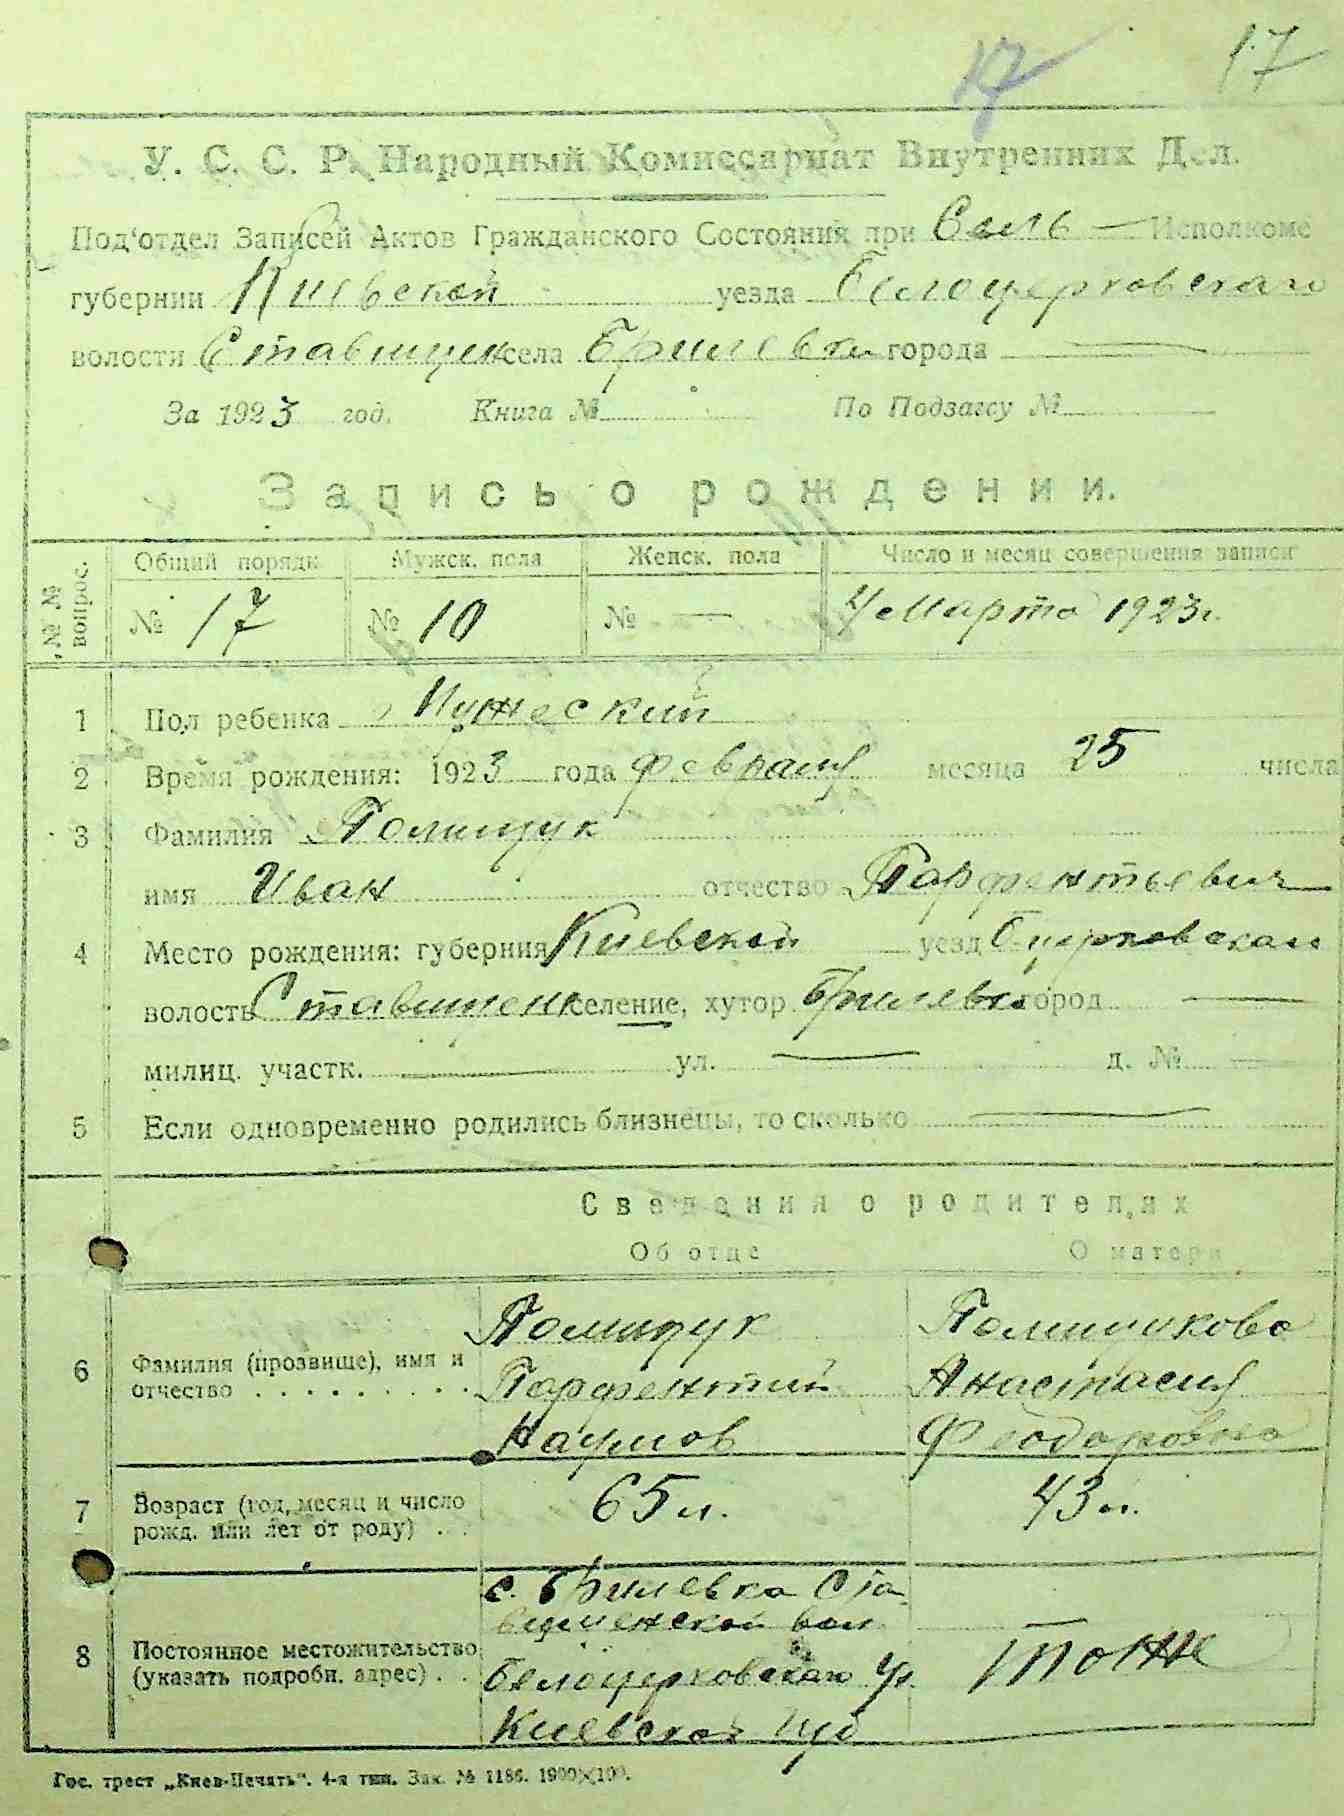 17 17
У. С. С. Р. Народный Комиссариат Внутренних Дел.
Под'отдел Записей Актов Гражданского Состояния при Сель — Исполкоме
губернии Киевской уезда Белоцерковскаго
волости Ставищен села Брилевки города —
За 1923 год. Книга № По Подзагсу №
Запись о рождении.
№№ вопрос. Общий порядк Мужск. пола Женск. пола Число и месяц совершения записи
№ 17 № 10 № — 4 Марта 1923 г.
1 Пол ребенка Мужеский
2 Время рождения: 1923 года февраля месяца 25 числа
3 Фамилия Полищук
имя Иван отчество Парфентьевич
4 Место рождения: губерния Киевской уезд Б-церковскаго
волость Ставищен селение, хутор Брилевка город —
милиц. участк. — ул. — д. № —
5 Если одновременно родились близнецы, то сколько —
Сведения о родителях
Об отце О матери
Полищук Полищукова
6 Фамилия (прозвище), имя и Парфентий Анастасия
отчество . . . . . . . . . Наумов Феодоровна
7 Возраст (год, месяц и число 65 л. 43 л.
рожд. или лет от роду) . .
с. Брилевка Ста-
вищенской вол.
8 Постоянное местожительство Белоцерковскаго у. тоже
(указать подробн. адрес) . . Киевской губ
Гос. трест „Киев-Печать". 4-я тип. Зак. № 1186. 1900×100.